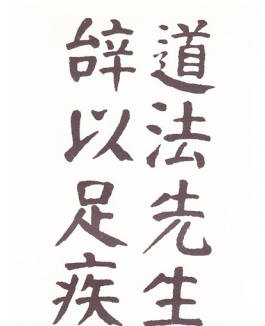 道法先生
辞以足疾